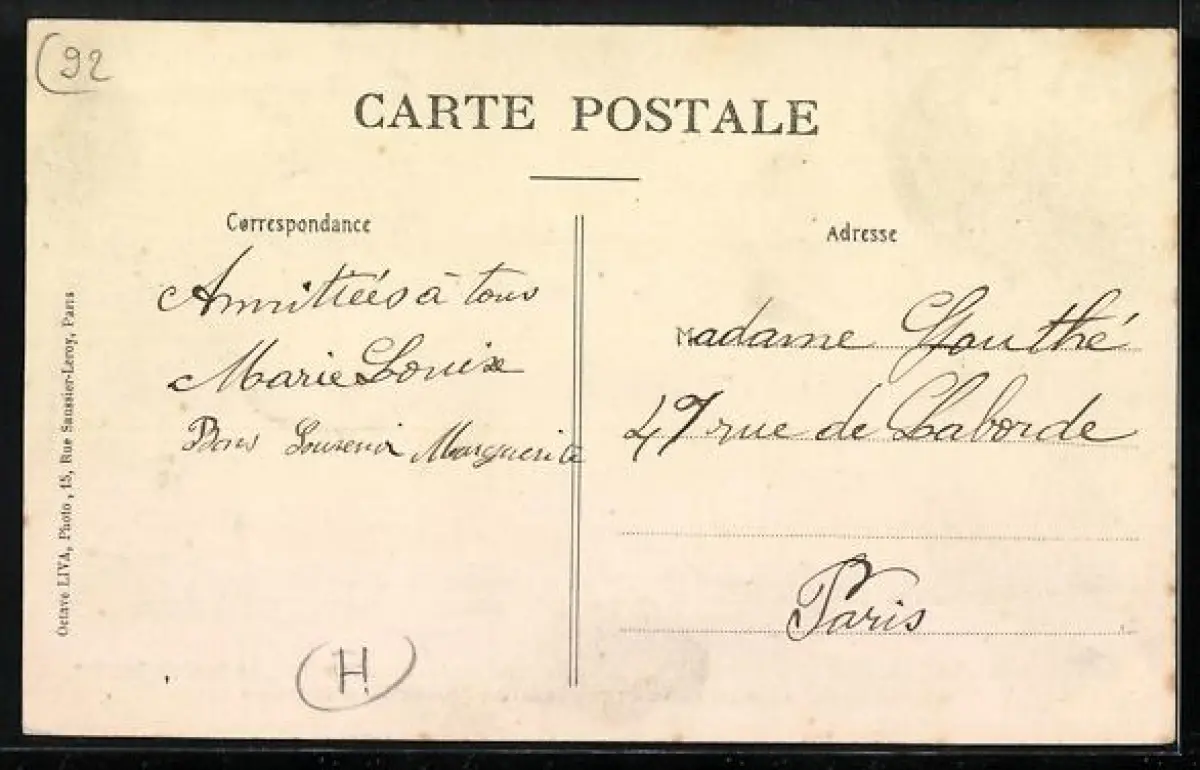 (92
CARTE POSTALE
Correspondance
Amitiées à tous
Marie Louise
Bons Souvenir Marguerite
Adresse
Madame Gouthé
47 rue de Laborde
Paris
Octave LIVA, Photo, 15, Rue Saussier-Leroy, Paris
H